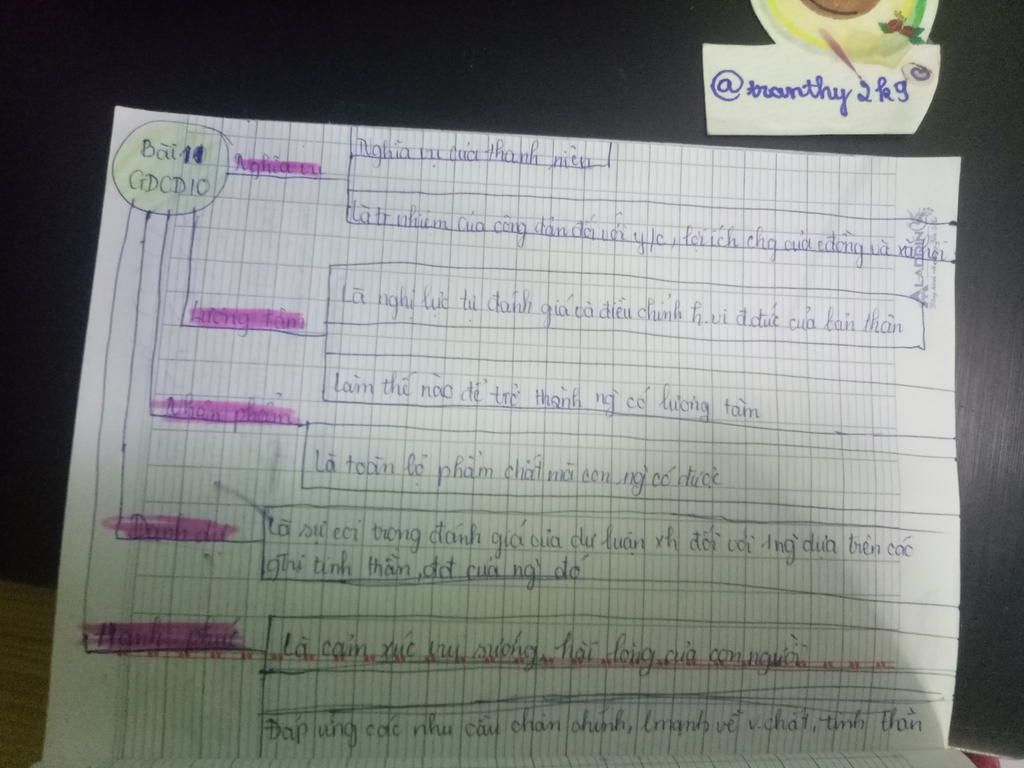 @tranthy2k9
Bài 11
GDCD10
Nghĩa vụ
Nghĩa vụ của thanh niên
Là tr nhiệm của công dân đối với y/c, lợi ích chg của cđồng và xã hội
Lương tâm
Là nghị lực tự đánh giá và điều chỉnh h.vi đ.đức của bản thân
Làm thế nào để trở thành ng` có lương tâm
Nhân phẩm
Là toàn bộ phẩm chất mà con ng` có được
Danh dự
Là sự coi trọng đánh giá của dư luận xh đối với 1 ng` dựa trên các
gtrị tinh thần, đđ của ng` đó
Hạnh phúc
Là cảm xúc vui sướng, hài lòng của con người
Đáp ứng các nhu cầu chân chính, lmạnh về v.chất, tinh thần